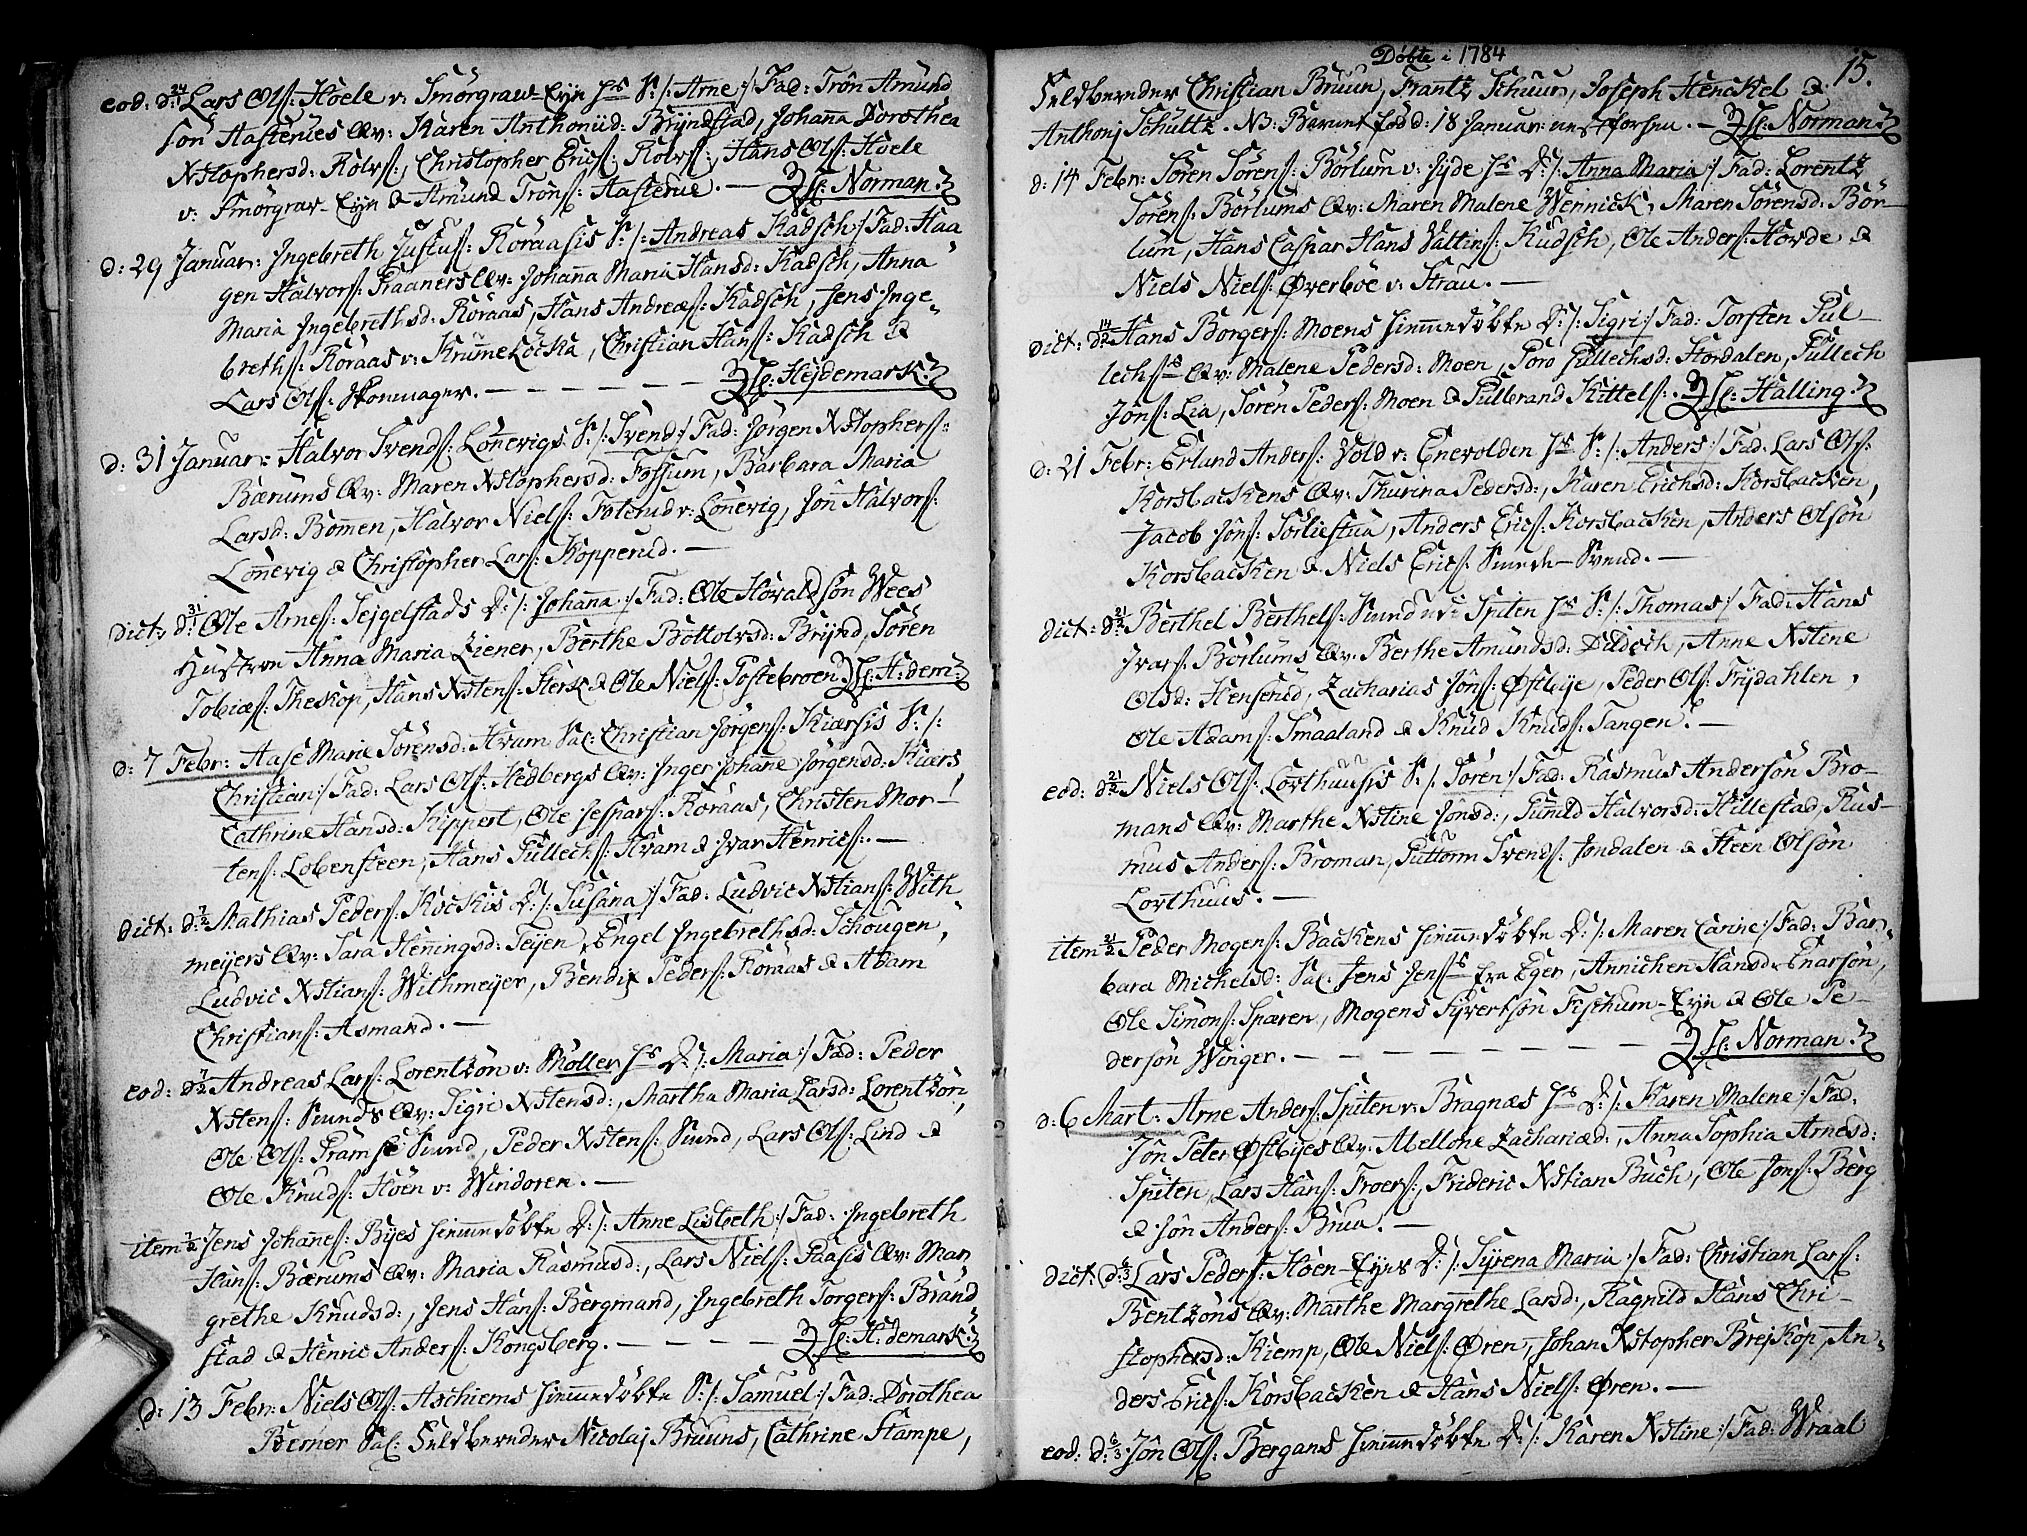 eod: d: 24/1 Lars Ols: Hoele v: Smörgrav-Eyje Hs S: /: Arne :/ Fad: Trön Amund
sön Hastenes Qv: Karen Anthoniid: Bryndstad, Johanna Dorothea
Xstophersd: Rolvs:, Christopher Erics: Rolvs:, Hans Ols: Hoele
v: Smörgrav-Eyje & Amund Tröns: Hastenue. — Hr: Norman
d: 29 Januar: Ingebreth Justus: Roraasis S: /: Andreas Kadsch :/ Fad: Haa
gen Halvors: Praaners Qv: Johanna Maria Hansd: Kadsch, Anna
Maria Ingebrethsd: Roraas, Hans Andreæs: Kadsch, Jens Inge-
breths: Roraas v: Krummelöcka, Christian Hans: Kadsch &
Lars Ols: Skomager. — — — — — — Hr: Hejdemark
d: 31 Januar: Halvor Svends: Lönnevigs S: /: Svend :/ Fad: Jörgen Xstophers:
Bærums Qv: Maren Xstophersd: Fossum, Barbara Maria
Larsd: Bommen, Halvor Niels: Foterud v: Lönnevig, Jön Halvors:
Lönnevig & Christopher Lars: Kopperud. —
dict: d: 31/1 Ole Arnes: Tejgelstads D: /: Johanna :/ Fad: Ole Hovaldsön Wees
Hustroe Anna Maria Ziener, Berthe Bottolvsd: Brynd, Sören
Tobiæs: Theskop, Hans Xstens: Sterk & Ole Niels: Postebroen Hr: H:dem:
d: 7 Febr: Aase Marie Sörensd: Hvam Sal: Christian Jörgens: Kiærsis S: /:
Christian :/ Fad: Lars Ols: Hedbergs Qv: Inger Johanne Jörgensd: Kiærs
Cathrine Hansd: Kippert, Ole Jespars: Roraas, Christen Mor-
tens: Lobensteen, Hans Gullechs: Hvam & Ivar Henrics: —
dict: d: 7/2 Mathias Peders: Kockis D: /: Susana :/ Fad: Ludvic Xstians: With
meijers Qv: Sara Henningsd: Teijen, Engel Ingebrethsd: Schougen,
Ludvic Xstians: Withmeyer, Bendix Peders: Roraas & Adam
Christians: Asmand. —
eod: d: 7/2 Andreas Lars: Lorentzön v: Möller Hs D: /: Maria :/ Fad: Peder
Xstens: Sunds Qv: Sigri Xstensd:, Martha Maria Larsd: Lorentzön,
Ole Ols: Pramse Sund, Peder Xstens: Sund, Lars Ols: Lind &
Ole Knuds: Höen v: Windoren. —
item 7/2 Jens Johannes: Byes hiemmedöbte D: /: Anne Lisbeth :/ Fad: Ingebreth
Hans: Bærums Qv: Maria Rasmusd:, Lars Niels: Paasis Qv: Mar
grethe Knudsd:, Jens Hans: Bergmand, Ingebreth Torgers: Brand
stad & Henric Anders: Kongsberg. — — — — Hr: H:demark
d: 13 Febr: Niels Ols: Aschiems hiemmedöbte S: /: Samuel :/ Fad: Dorothea
Berner Sal: Feldbereder Nicolaj Bruuns, Cathrine Stampe,
Döbte i 1784
15.
Feldbereder Christian Bruun, Frantz Schuur, Joseph Henckel &
Anthonj Schultz. NB: Barnet föd d: 18 Januar: næstforhen. — Hr: Norman
d: 14 Febr: Sören Sörens: Börlum v: Syde Hs D: /: Anna Maria :/ Fad: Lorentz
Sörens: Börlums Qv: Maren Malene Wennick, Maren Sörensd: Bör-
lum, Hans Caspar Hans Valtins: Kudsch, Ole Anders: Horde &
Niels Niels: Överböe v: Strau. —
dict: d: 14/2 Hans Borgers: Moens hiemmedöbte D: /: Sigri :/ Fad: Torsten Gul-
lechss Qv: Malene Pedersd: Moen, Goro Gullechsd: Stordalen, Gullech
Jöns: Lia, Sören Peders: Moen & Gulbrand Kittels: Hr: Halling
d: 21 Febr: Erlund Anders: Vold v: Enevolden Hs S: /: Anders :/ Fad: Lars Ols:
Korsbackens Qv: Thurina Pedersd:, Karen Erichsd: Korsbacken,
Jacob Jöns: Sorliestua, Anders Erics: Korsbacken, Anders Olsön
Korsbacken & Niels Erics: Sunde-Svend. —
dict: d: 21/2 Berthel Berthels: Sund v: Spiten Hs S: /: Thomas :/ Fad: Hans
Ivars: Börlums Qv: Berthe Amundsd: Dildsch, Anne Xstine
Olsd: Hensesd, Zacharias Jöns: Östbye, Peder Ols: Frydahlen,
Ole Adams: Smaaland & Knud Knuds: Tangen. —
eod: d: 21/2 Niels Ols: Lorthuusis S: /: Sören :/ Fad: Rasmus Andersön Bro-
mans Qv: Marthe Xstine Jönsd:, Gunild Halvorsd: Hillestad, Ras-
mus Anders: Broman, Guttorm Svends: Jondalen & Steen Olsön
Lorthuus. —
item 21/2 Peder Mogens: Backens hiemmedöbte D: /: Maren Carine :/ Fad: Bar-
bara Michelsd: Sal: Jens Jenss fra Eger, Annichen Hansd: Enarsön,
Ole Simons: Spæren, Mogens Syvertsön Fischum-Eyje & Ole Pe-
dersön Winger. — — — — — — — Hr: Norman
d: 6 Mart: Arne Anders: Spiten v: Bragnæs Hs D: /: Karen Malene :/ Fad:
Jön Peter Östbyes Qv: Abellone Zachariæd:, Anna Sophia Arnesd:
Spiten, Lars Hans: Froers:, Frideric Xstian Buch, Ole Jöns: Berg
& Jön Anders: Brua. —
dict: d: 6/3 Lars Peders: Höen-Eyes D: /: Syrena Maria :/ Fad: Christian Lars:
Bentzöns Qv: Marthe Margrethe Larsd:, Ragnild Hans Chri-
stophersd: Kiemp, Ole Niels: Ören, Johan Xstopher Brejkop, An-
ders Erics: Korsbacken & Hans Niels: Ören. —
eod: d: 6/3 Jön Ols: Bergans hiemmedöbte D: /: Karen Xstine :/ Fad: Wraal